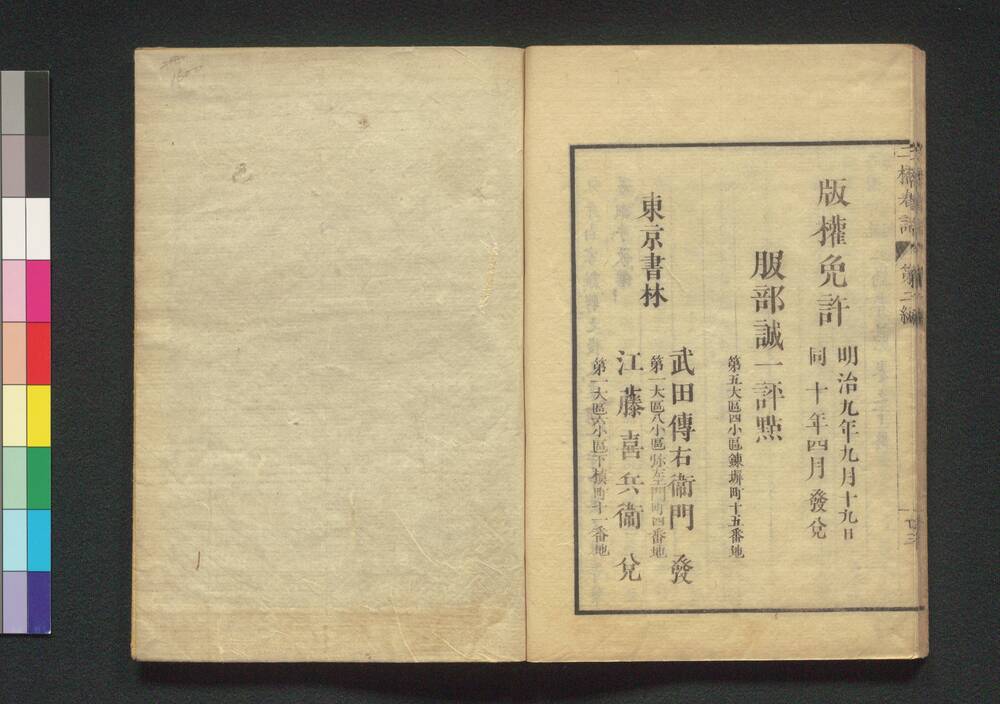 版權免許
明治九年九月十九日
同十年四月發兌
服部誠一評點
第五大區四小區錬塀町十五番地
東京書林
武田傳右衞門
第一大區八小區弥左エ門町四番地
江藤喜兵衞
第一大區六小區下槇町十一番地
發兌
第二編